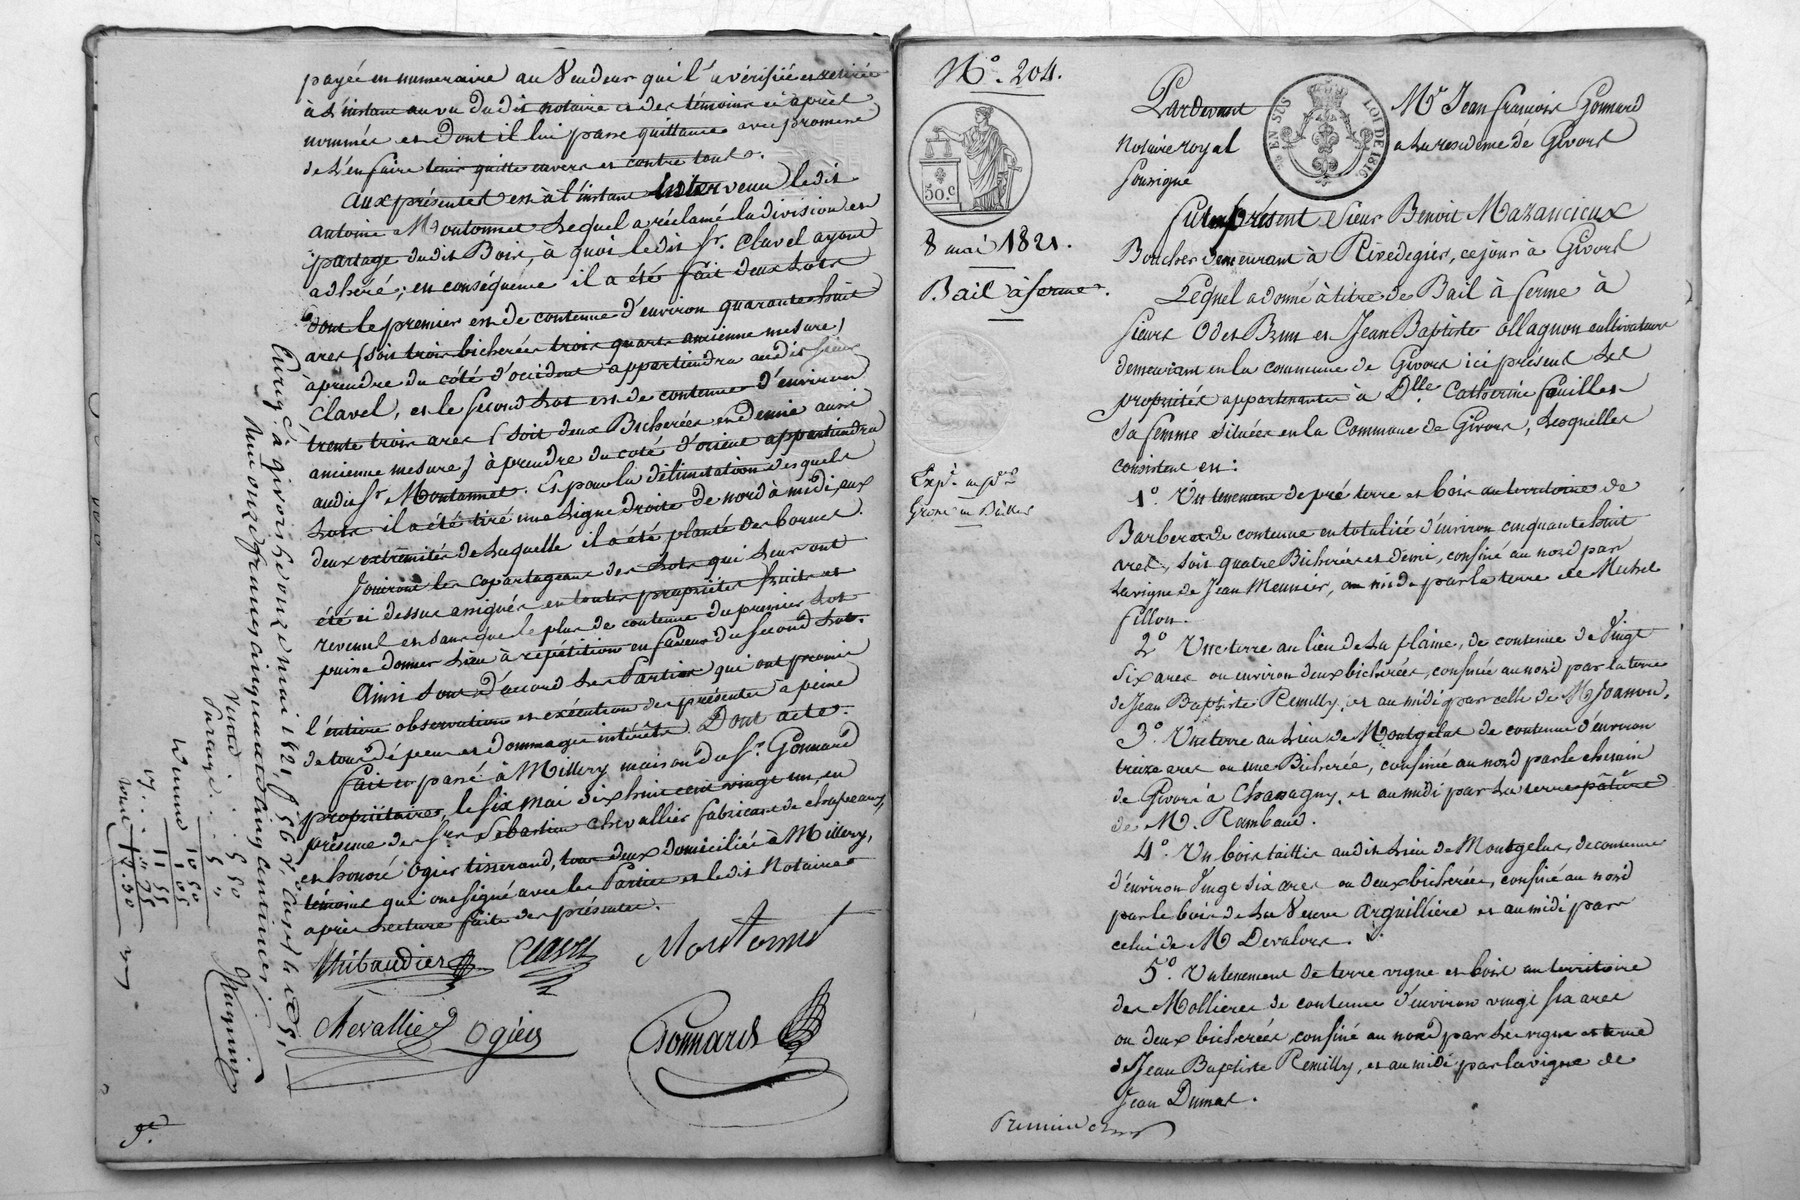 payée en numéraire au Vendeur qui l'a vérifiée et retirée
à l'instant au vu dudit notaire et des témoins ci après
nommés et dont il lui passe quittance avec promesse
de l'en faire tenir quitte envers et contre tous.
Aux présentes est à l'instant intervenu ledit
antoine Moutonnet lequel a réclamé la division et
partage dudit Bois, à quoi ledit Sr. Clavel ayant
adhéré; en conséquence il a été fait deux Lots
dont le premier est de contenue d'environ quarante huit
ares (soit trois bicherées trois quarts ancienne mesure)
à prendre du côté d'occident appartiendra audit sieur
Clavel, et le second Lot est de contenue d'environ
trente trois ares (soit deux Bicherées et demie aussi
ancienne mesure) à prendre du coté d'orient appartiendra
audit Sr. Moutonnet. Et pour la délimitation desquels
Lots il a été tiré une Ligne droite de nord à midi, aux
deux extrêmités de Laquelle il a été planté des bornes.
Jouiront les copartageans des Lots qui Leur ont
été ci dessus assignés en toutes propriétés fruits et
revenus et sans que le plus de contenue du premier Lot
puisse donner Lieu à répétition en faveur du second Lot.
Ainsi sont d'accord Les Parties qui ont promis
l'entière observation et exécution des présentes à peine
de tous dépens et dommages intérêts. Dont acte.
fait et passé à Millery maison du Sr. Gonnard
propriétaire, le six mai dix huit cent vingt un, en
présence de Srs Sébastien Chevallier fabricant de chapeaux,
et honoré Ogier tisserand, tous deux domiciliés à Millery,
témoins qui ont signé avec les Parties et ledit Notaire
après Lecture faite des présentes.
Thibaudier Clavel Moutonnet
Chevallier Ogier Gonnard
Enregé à givors le onze mai 1821, f° 56
onze francs cinquante cinq centimes
5 50
5 "
10 50
1 05
11 55
" 75
No. 204.
50.C
8 mai 1821.
Bail à ferme.
EN SUS
LOI DE 1816.
Pardevant Mr Jean francois Gonnard
Notaire royal à La résidence de Givors
soussigné
fut présent Sieur Benoit Mazancieux
Boucher demeurant à Rivedegier, ce jour à Givors
Lequel a donné à titre de Bail à ferme à
sieurs Odet Brun et Jean Baptiste ollagnon cultivateurs
demeurant en la commune de Givors ici présent Les
propriétés appartenantes à Dlle. Catherine fouilles
sa femme situées en la Commune de Givors, Lesquelles
consistent en:
1°. Un tenement de pré terre et bois au territoire de
Barberat de contenue en totalité d'environ cinquante huit
ares, soit quatre Bicherées et demie, confiné au nord par
La vigne de Jean Meunier, au midi par la terre de Michel
fillon.
2° Une terre au lieu de La plaine, de contenue de Vingt
six ares ou environ deux bicherées, confinée au nord par la terre
de Jean Baptiste Remilly, et au midi par celle de M. Joanon,
3°. Une terre au Lieu de Montgelas de contenue d'environ
treize ares ou une Bicherée, confinée au nord par le chemin
de Givors à Chassagny, et au midi par La terre pâture
de M. Rambaud.
4°. Un bois taillis audit Lieu de Montgelas, de contenue
d'environ Vingt six ares ou deux bicherées, confiné au nord
par le bois de La Veuve Arguillière et au midi par
celui de M. Devalors.
5°. Un tenement de terre vigne et bois au territoire
des Mollieres de contenue d'environ vingt six ares
ou deux bicherées, confiné au nord par Les vigne et terre
de Jean Baptiste Remilly, et au midi par la vigne de
Jean Dumas.